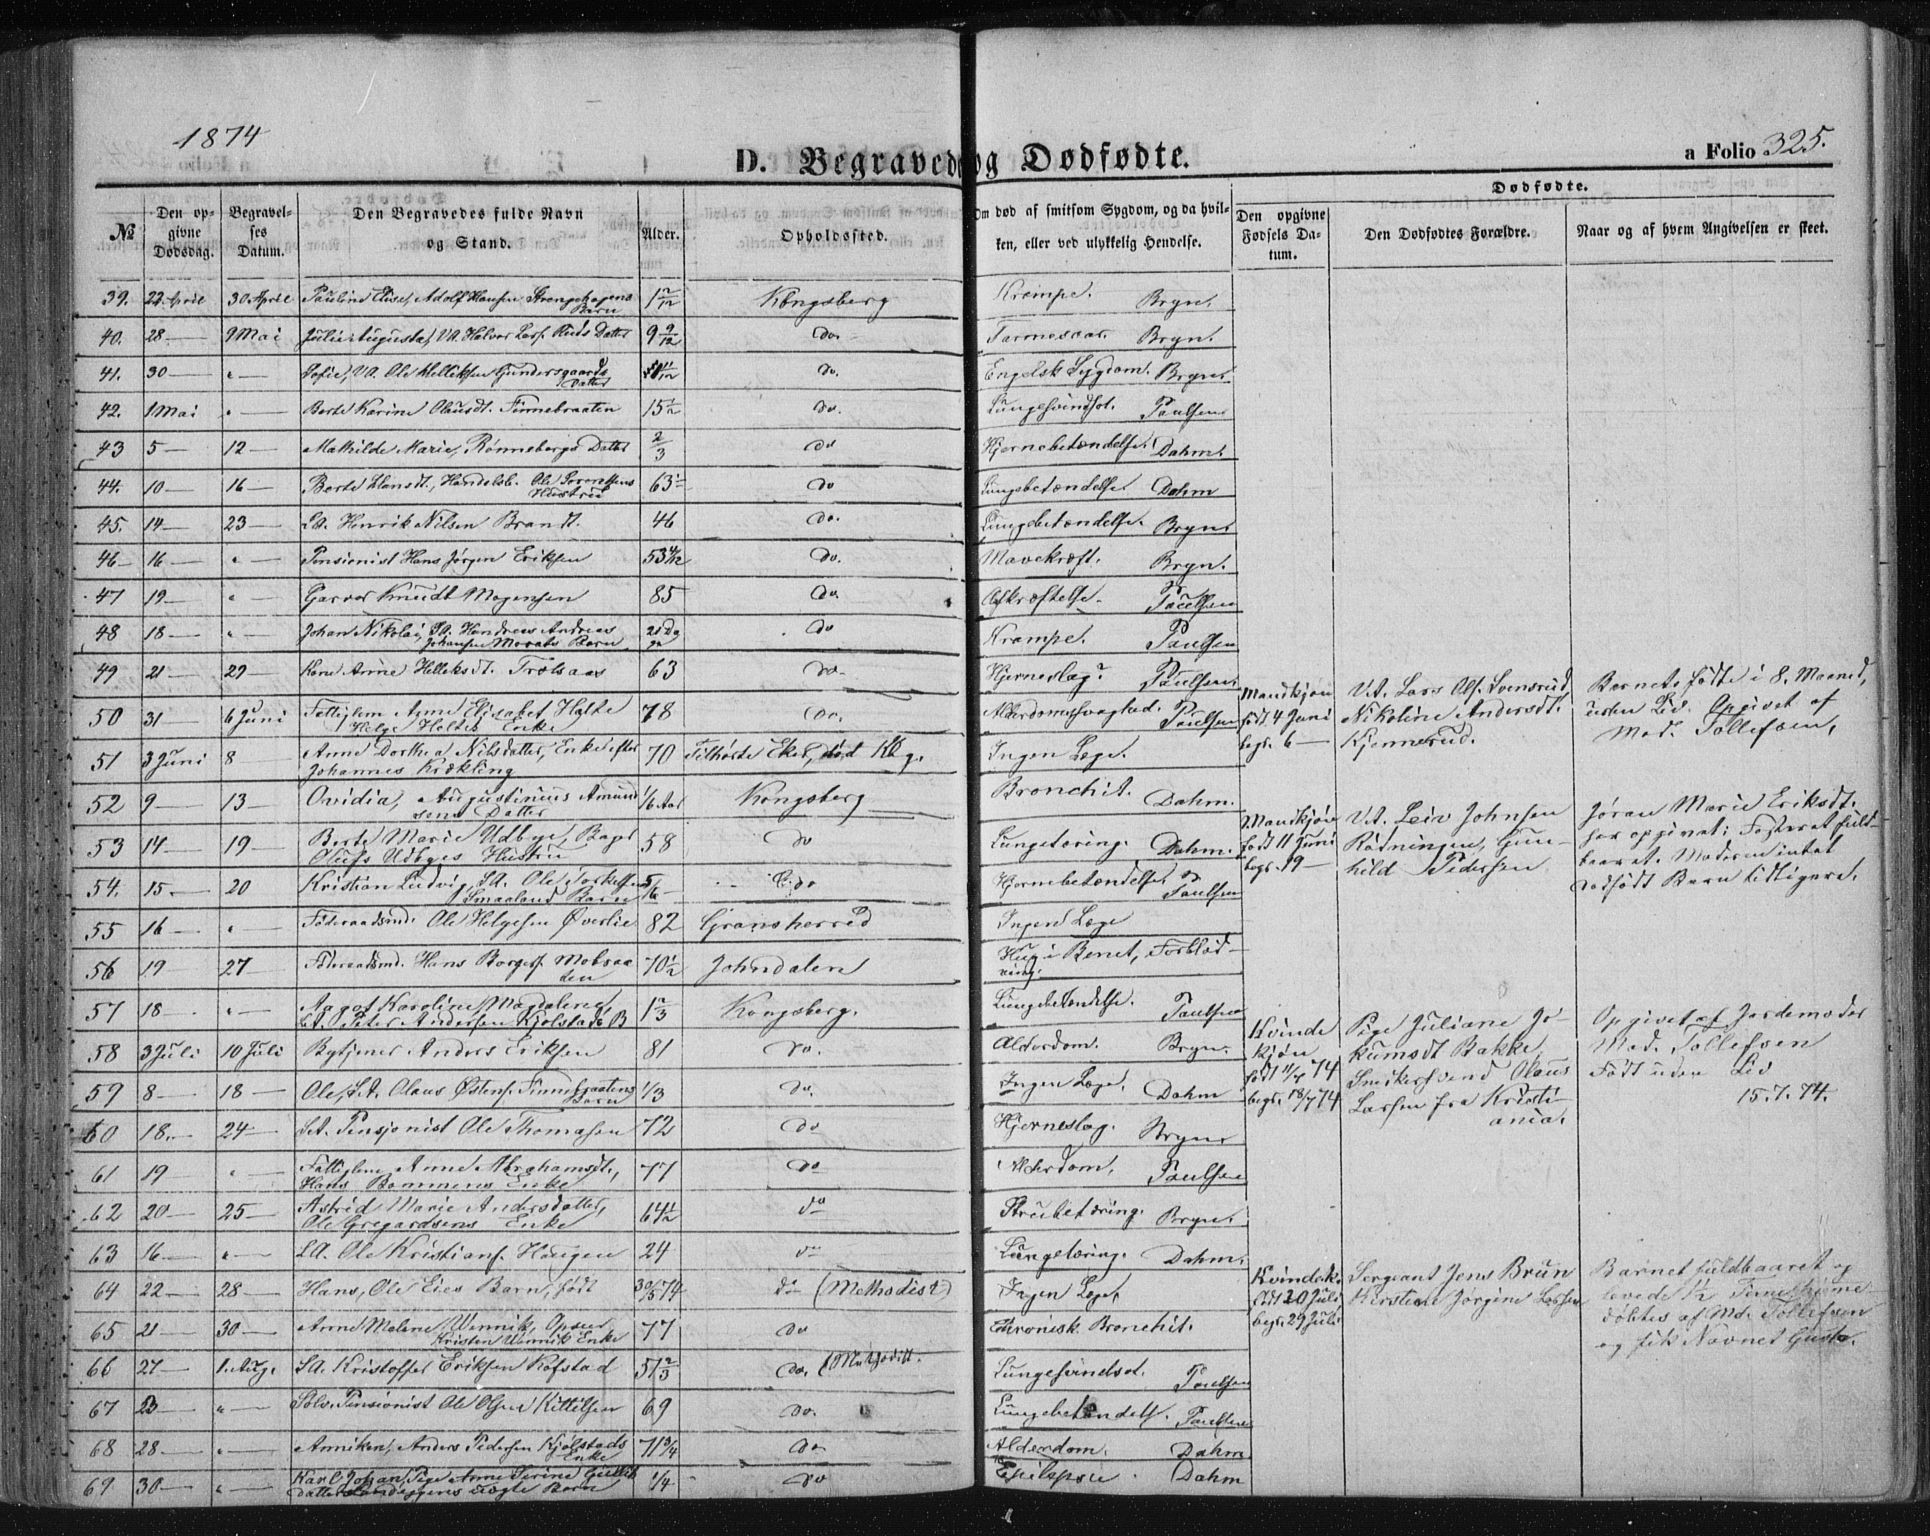 1874
D. Begravede og Dødfødte.
a Folio 325.
№
Den opgivne Dødsdag.
Begravelses Datum.
Den Begravedes fulde Navn og Stand.
Alder.
Opholdssted.
Om død af smitsom Sygdom, og da hvilken, eller ved ulykkelig Hendelse.
Dødfødte.
Den opgivne Fødsels Datum.
Den Dødfødtes Forældre.
Naar og af hvem Angivelsen er skeet.
39. 22 April 30 April Pauline Elise, Adolf Hansen Barn Kongsberg Krampe. Bryn.
40. 28 — 9 Mai Julie Augusta, Halvor Datter 9 9/12 do. Bryn.
41. 30 — " Sofie, Ole Helliksen Gundersgaards Datter do. Engelsk Sygdom. Bryn.
42. 1 Mai " Berte Karine Olausdt. Finnebraaten 15 1/2 do. Lungesvindsot. Paulsen
43 5 — 12 — Mathilde Marie, Rønnebergs Datter 2/3 do Hjernebetændelse. Dahm.
44. 10 — 16 — Berte Hansdt., Handelsb. Ole Hustru 63 do Lungebetændelse. Dahm
45. 14 — 23 — Henrik Nilsen Brandt. 46 do. Lungebetændelse. Bryn
46 16 — " Pensionist Hans Jørgen Eriksen do. Mavekræft. Bryn.
47 19 — " Garver Knudt Mogensen 85 do. Afkræftelse. Paulsen
48 18 — " Johan Nikolai, Andreas Johansen Barn do Krampe. Paulsen
49 21 — 29 — Anne Helleksdt. 63 do. Hjerneslag. Paulsen.
50 31 — 6 Juni Fattiglem Anne Elisabet Holte Helge Holtes Enke 78 do. Alderdomssvaghed. Paulsen
51 3 Juni 8 — Anne Dorthea Nilsdatter, Enke efter Johannes Krækling 70 Tilhørte Eker, død Kbg. Ingen Læge.
52 9 — 13 — Ovidia, Augustinius Amundsens Datter 1/6 Aar Kongsberg Bronchit. Dahm.
53 14 — 19 — Berte Marie Udbye, Bager Olufs Udbyes Hustru 58 do Lungetæring. Dahm.
54. 15. — 20 Kristian Ludvig, Ole Torkelsen Smaaland Barn 5/6 do Hjernebetændelse Paulsen
55 16 — " Føderaadsmd. Ole Helgesen Øverlie 82 Gransherred Ingen Læge
56 19 27 — Føderaadsmd. Hans 70 1/2 Johndalen i Benet, Forblødning.
57 18 — " Aagot Karoline Magdalene, Peter Andersen Kjølstads B Kongsberg. Lungebetændelse. Paulsen
58 3 Juli 10 Juli Bytjener Anders Eriksen 81 do. Alderdom. Bryn.
59 8 — 18 — Ole, Olaus Østens. Finnebraatens Barn 1/3 do. Ingen Læge. Dahm
60 18. — 24 — Pensjonist Ole Thomasen 72 do Hjerneslag. Bryn
61 19 — " Fattiglem Anne Abrahamsdt., Hans Enke 77 do Alderdom. Paulsen
62 20 — 25 — Astrid Marie Andersdatter, Ole Gregardsens Enke 64 1/2 do Strubetæring. Bryn.
63 16 — " Ole Kristians. Haugen 24 do Lungetæring. Dahm.
64 22 — 28 — Hans, Ole Eies Barn, født 30/5 74 do (Methodist) Ingen Læge,
65 21 — 30 — Anne Malene Wennik, Kristen Wennik Enke 77 do Kronisk Bronchit.
66 27 — 1. Aug. Kristoffer Eriksen Kofstad 51 2/3 do. (Methodist. Lungesvindsot. Paulsen
67 23 — " Sølv. Pensionist Ole Olsen Kittelsen 69 do. Lungebetændelse. Paulsen
68 28 — " Anniken, Anders Pedersen Kjølstads Enke 71 3/4 do Alderdom. Dahm
69 30 — " Karl Johan, Pige Anne Serine datter uægte Barn 1/4 do Epilepsie. Dahm
Mandkjøn født 4 Juni begr. 6 —
Lars Ols. Svensrud, Nikoline Andersdt. Kjennerud.
Barnet født i 8. Maaned, uden Liv. Opgivet af Mad. Tollefsen,
Mandkjøn født 11 Juni begr. 19 —
Leiv Johnsen Rødningen, Gunhild Pedersen
Jøran Marie Eriksdt. har opgivet: Fosteret fuldbaaret. Moderen intet dødfødt Barn tidligere.
Kvindekjøn født 11/7 74 begr. 18/7 74
Pige Juliane Bakke, Olaus Larsen fra Kristiania.
Opgivet af Jordemoder Mad. Tollefsen Født uden Liv 15.7.74.
Kvindek. født 20 Juli begr. 29 Juli
Sergeant Jens Brun Kirstine Jørgine Larsen
Barnet fuldbaaret og levede 1/2 Time døbtes af Md. Tollefsen og fik Navnet